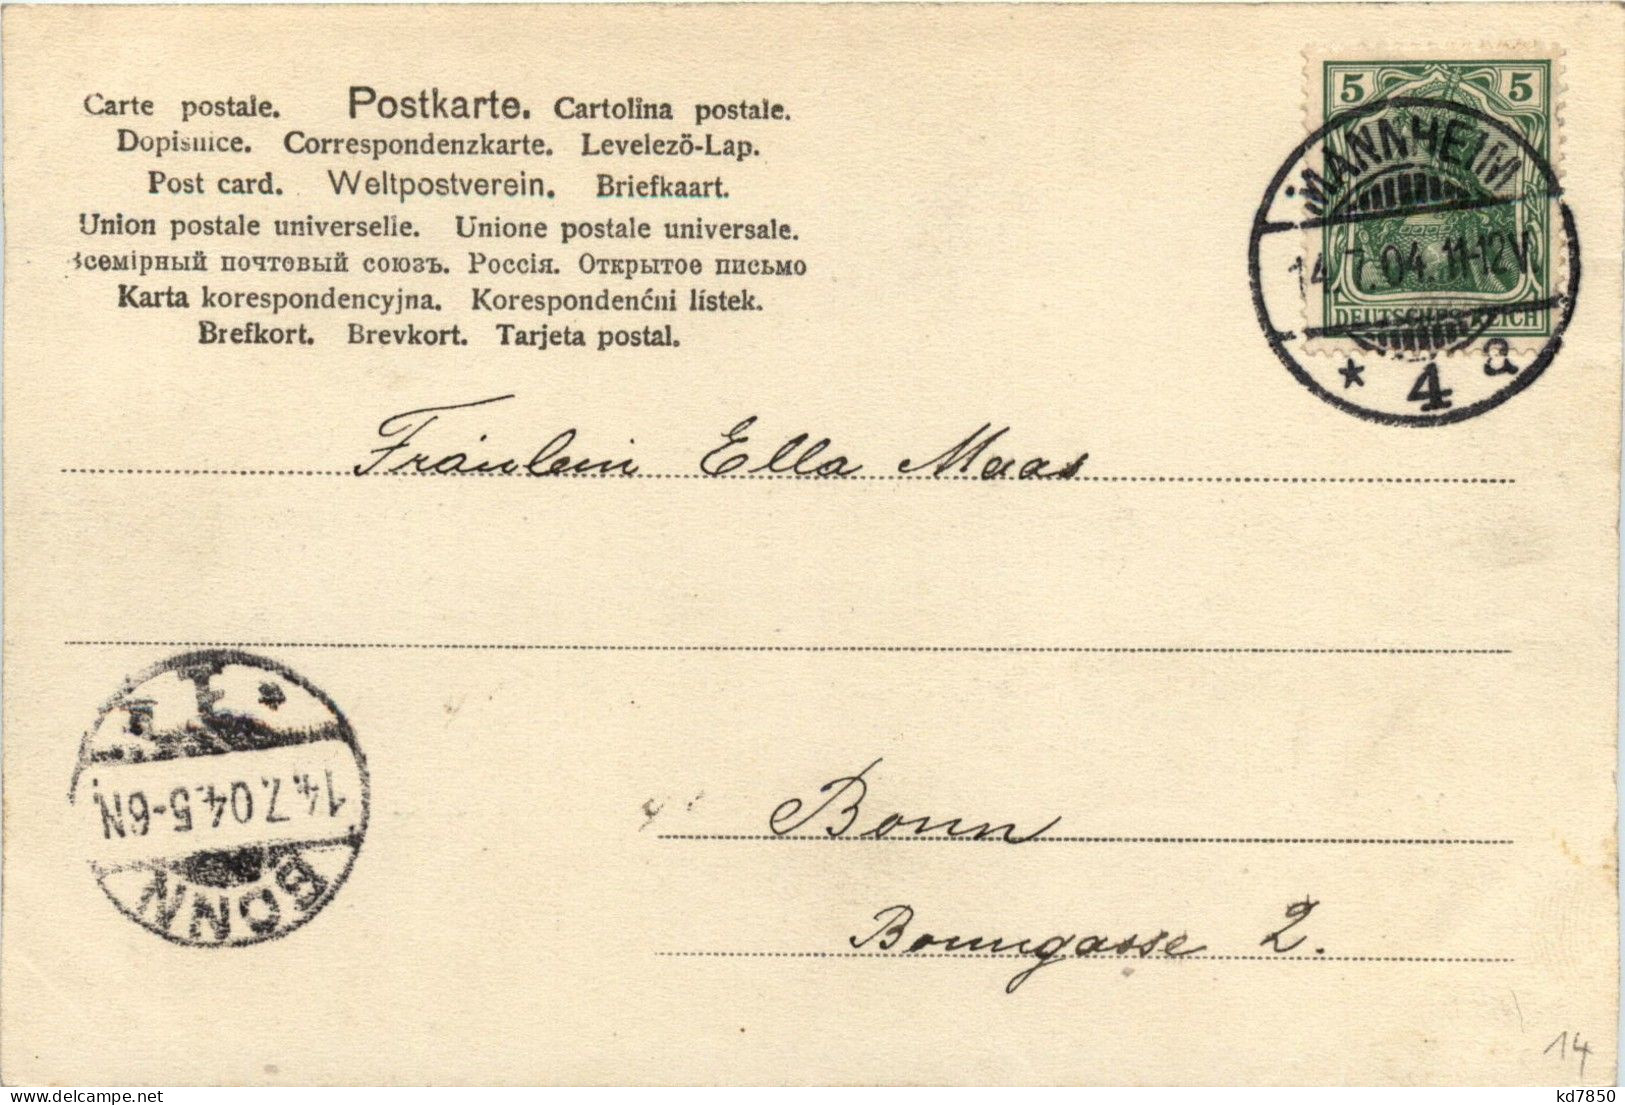 Carte postale. Postkarte. Cartolina postale.
Dopisnice. Correspondenzkarte. Levelező-Lap.
Post card. Weltpostverein. Briefkaart.
Union postale universelle. Unione postale universale.
Всемірный почтовый союзъ. Россія. Открытое письмо
Karta korespondencyjna. Korespondenćni lístek.
Brefkort. Brevkort. Tarjeta postal.
5 5
DEUTSCHES REICH
MANNHEIM
14.7.04.11-12V.
* 4 a
Fräulein Ella Maas
BONN
14.7.04.5-6N.
Bonn
Bonngasse 2.
14
delcampe.net
kd7850